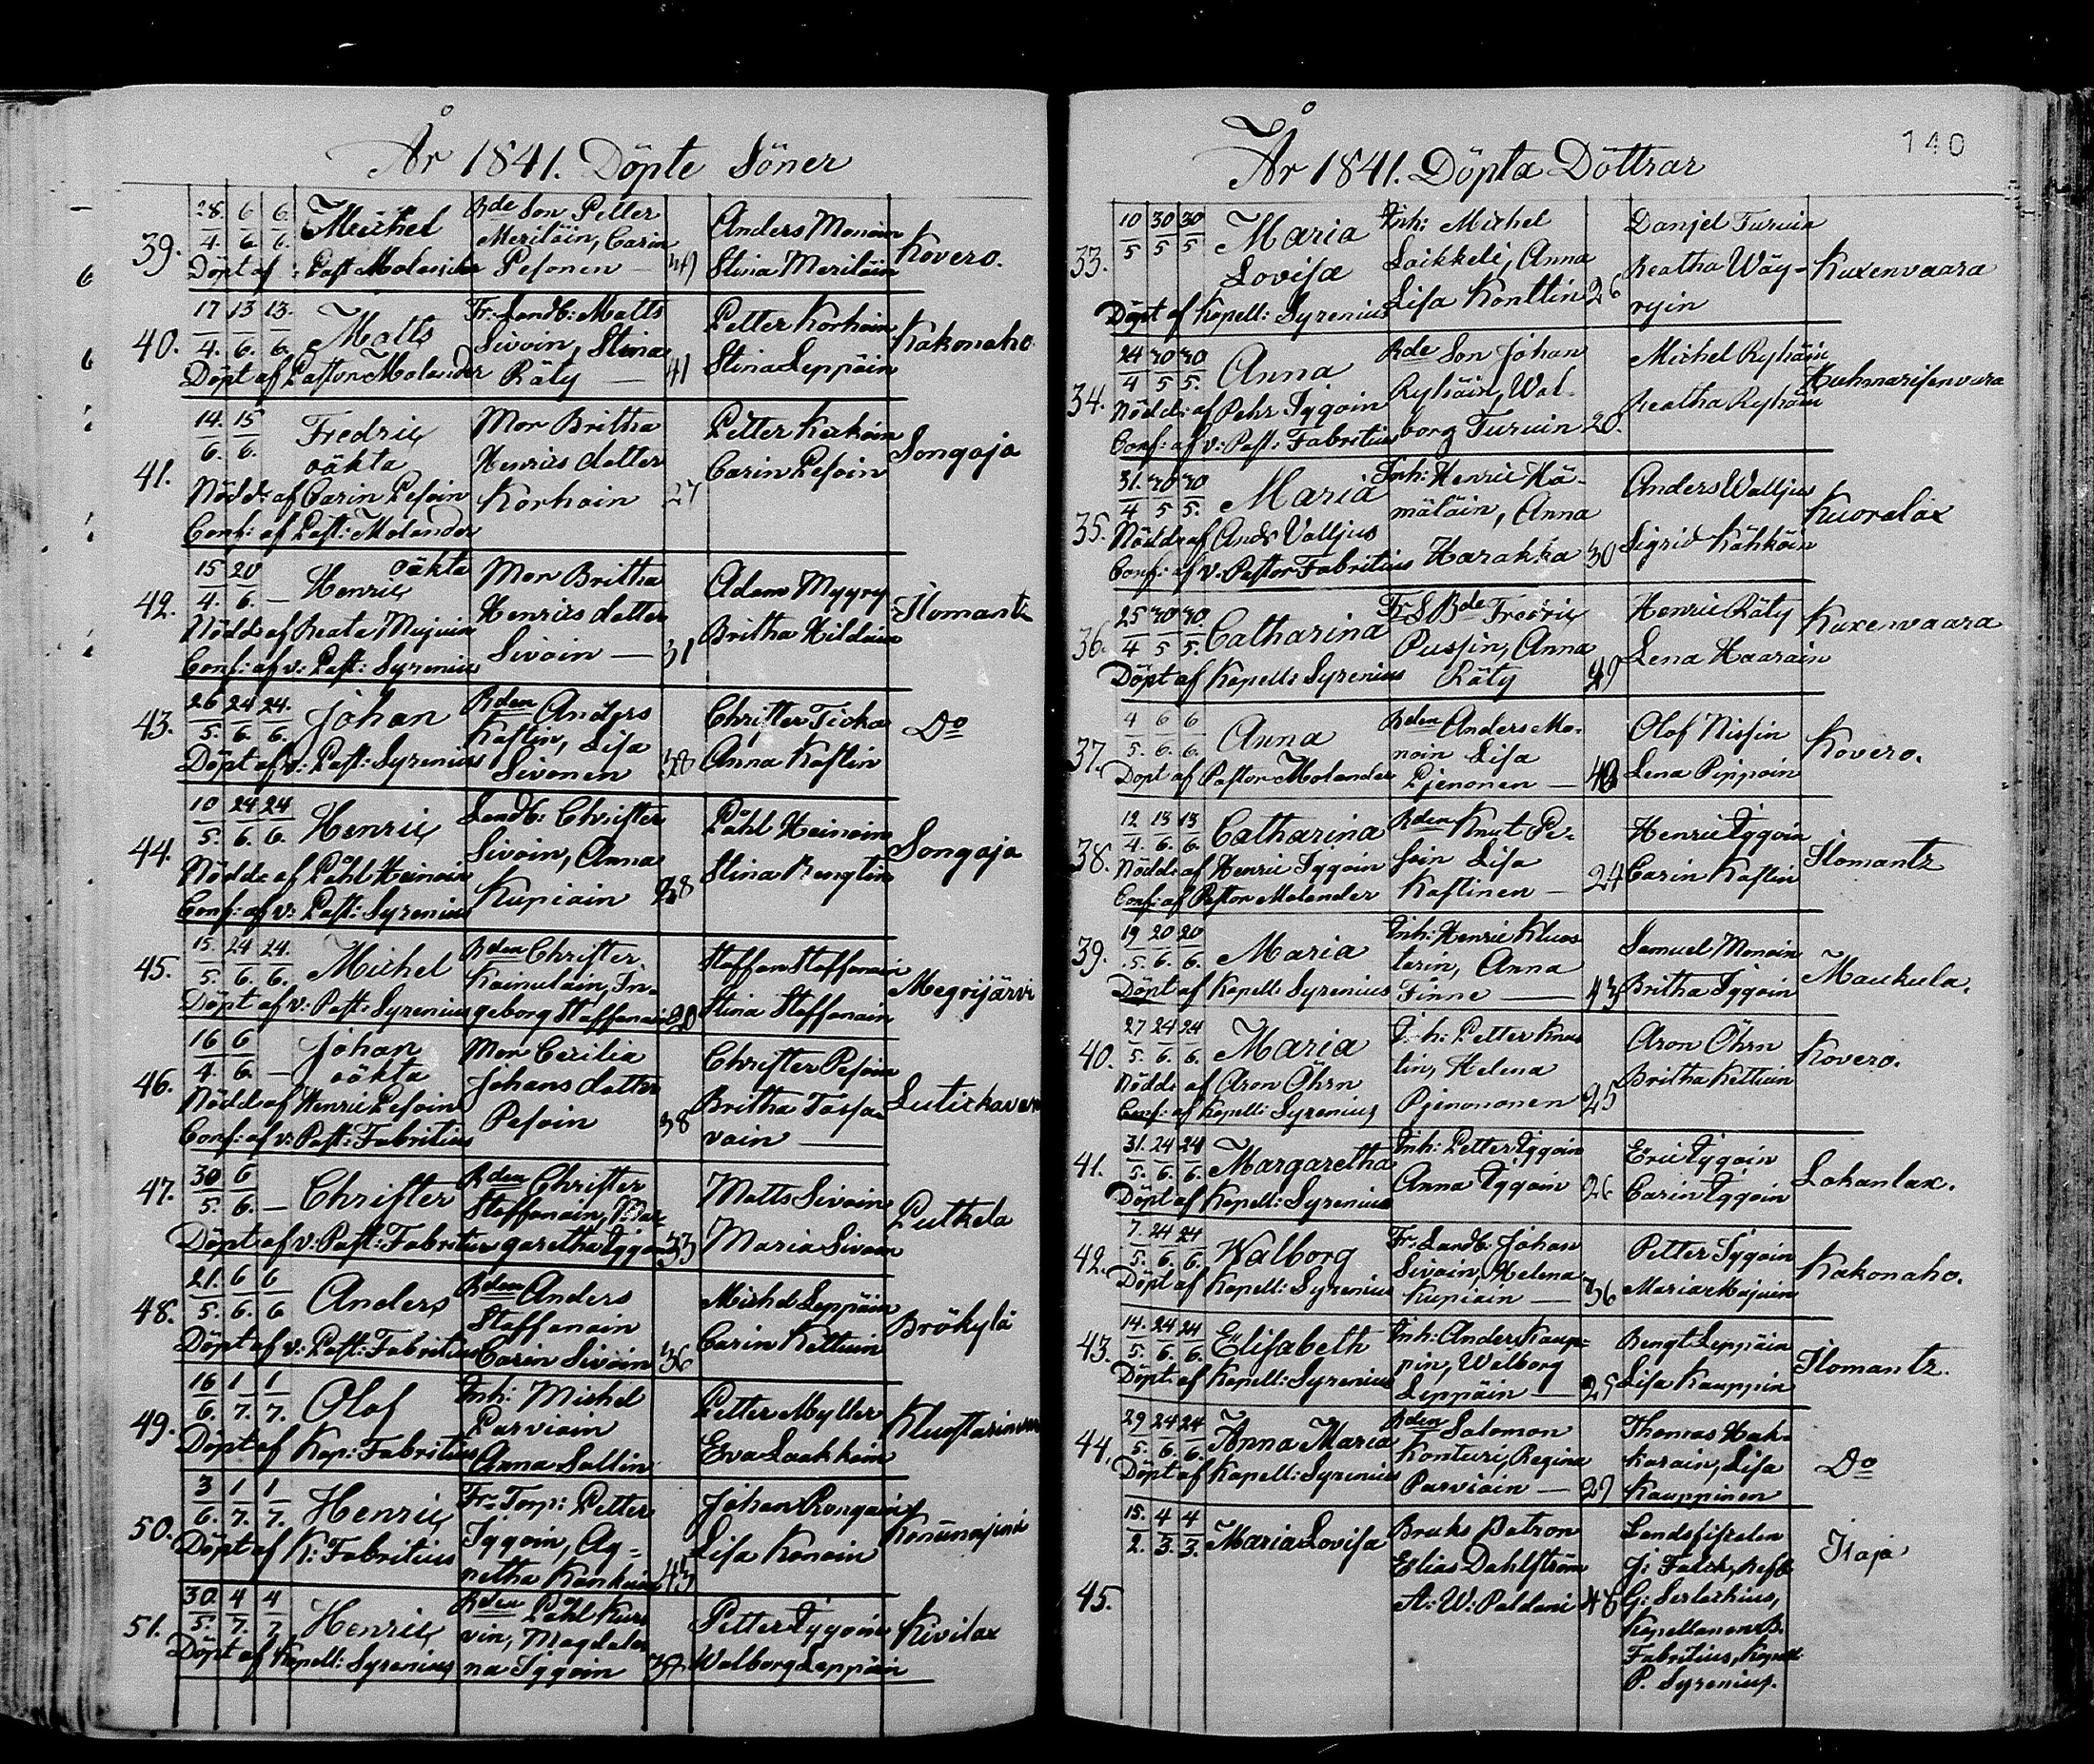 År 1841. Döpte Söner
39.
28. 6. 6. Michel Bde Son Petter Anders Monoin
4. 6. 6. Meriläin, Carin Kovero.
Döpt af: Past Molander Pesonen — 49 Stina Meriläin
40.
17 13 13. Matts Fr: Landb: Matts Petter Korhoin
4. 6. 6. Sivoin, Stina Kakonaho
Döpt af Pastor Molander Räty — 41 Stina Leppäin
41.
14. 15 Fredric Mor Britha Petter Kakoin
6. 6. oäkta Henrics dotter Carin Pesoin Songaja
Nödd: af Carin Pesoin Korhoin 27
Conf: af Past: Molander
42.
15 20 — Henric oäkta Mor Britha Adam Mygry
4. 6. Henrics dotter Ilomants
Nödd: af Beata Mujuin Sivoin — 31 Britha Hildain
Conf: af v: Past: Syrenius
43.
26 24 24. Johan Bden Anders Christer Ticka Do
5. 6. 6. Kastin, Lisa
Döpt af v: Past: Syrenius Sivonen 38 Anna Kastin
44.
10 24 24 Henric Landb: Christer Påhl Hainoin
5. 6. 6. Sivoin, Anna Songaja
Nödd: af Påhl Hainoin Kupiain 28 Stina Rengtin
Conf: af v: Past: Syrenius
45.
15. 24 24. Michel Bden Christer Staffan Staffanain
5. 6. 6. Kainulain, In- Megrijärvi
Döpt af v: Past: Syrenius geborg Staffanain 20 Stina Staffanain
46.
16 6 — Johan Mor Cecilia Christer Pesoin
4. 6. oäkta Johans dotter Lutickavara
Nödd af Henric Pesoin Pesoin 38 Britha Tossa-
Conf: af v: Past: Fabritius vain —
47.
30 6 — Christer Bden Christer Matts Sivoin
5. 6. Staffanain, Mar- Putkela
Döpt af v: Past: Fabritius garetha Iggoin 33 Maria Sivoin
48.
21. 6 6 Anders Bden Anders Michel Leppäin
5. 6. 6 Staffanain Brökylä
Döpt af v: Past: Fabritius Carin Sivoin 36 Carin Kettuin
49.
16 1 1 Olof Inh: Michel Petter Myller
6. 7. 7. Parviain
Döpt af Kap: Fabritius Anna Sallin Eva Laakkoin
50.
3 1 1 Henric Fr: Torp: Petter Johan Rongain
6. 7. 7. Iggoin, Ag-
Döpt af K: Fabritius netha Kankain 43 Lisa Konoin
51.
30. 4 4 Henric Bden Påhl Kur- Petter Iggoin Kivilax
5. 7. 7. vin, Magdale-
Döpt af Kapell: Syrenius na Iggoin Walborg Leppäin
140
År 1841. Döpta Döttrar
33.
10 30 30 Maria Inh: Michel Danjel Turuin
5 5 5 Lovisa Laikkeli, Anna Beatha Wäy- Kuxenvaara
Döpt af Kapell: Syrenius Lisa Konttin 26 ryin
34.
24 30 30 Anna Bde Son Johan Michel Ryhäin
4 5 5. Ryhäin, Wal- Huhmarisenvara
Nödd: af Pehr Iggoin borg Turuin 20. Beatha Ryhäin
Conf: af v: Past: Fabritius
35.
31. 30 30 Maria Inh: Henric Hä- Anders Walljus
4 5 5. mäläin, Anna Kuoralax
Nödd: af Ands Valljus Harakka 30 Sigrid Kähköin
Conf: af v: Pastor Fabritius
36.
25 30 30 Catharina Fr: S Bde Fredric Henric Räty
4 5 5. Pussin, Anna Kuxenvaara
Döpt af Kapell: Syrenius Räty 29 Lena Haarain
37.
4 6 6 Anna Bden Anders Mo- Olof Nissin
5. 6. 6. noin Lisa Kovero.
Döpt af Pastor Molander Pjenonen — Lena Pippoin
38.
12 13 13 Catharina Bden Knut Pe- Henric Iggoin
4. 6. 6. soin Lisa
Nödd: af Henric Iggoin Kastinen — 24 Carin Kastin Ilomants
Conf: af Pastor Molander
39.
19 20 20 Maria Inh: Henric Kluos- Samuel Monoin
5. 6. 6. tarin, Anna Maukula.
Döpt af Kapell: Syrenius Finne — 43 Britha Iggoin
40.
27 24 24 Maria Inh: Petter Knuu- Aron Öhrn
5. 6. 6. tin, Helena Kovero.
Nödd: af Aron Öhrn Pjenononen 25 Britha Kettuin
Conf: af Kapell: Syrenius
41.
31. 24 24 Margaretha Inh: Petter Iggoin Eric Iggoin
5. 6. 6. Anna Iggoin 26 Carin Iggoin Lohanlax.
Döpt af Kapell: Syrenius
42.
7. 24 24 Walborg Fr: Landb: Johan Petter Iggoin
5. 6. 6. Sivoin, Helena Kakonaho.
Döpt af Kapell: Syrenius Kupiain — 36 Maria Mujuin
43.
14. 24 24 Elisabeth Inh: Anders Kaup- Bengt Leppäin
5. 6. 6. pin, Walborg Ilomantz.
Döpt af Kapell: Syrenius Leppäin — 25 Lisa Kauppin
44.
29 24 24 Anna Maria Bden Salomon Thomas Hak-
5. 6. 6. Konturi, Regina karain, Lisa Do
Döpt af Kapell: Syrenius Parviain — 29 Kauppinen
45.
15. 4 4 Maria Lovisa Bruks Patron Landsfiskalen
2. 3. 3. Elias Dahlström J: Falck, Refl:
A: W: Paldani 48 G: Serlachius, Ilaja
Kapellanen B.
Fabritius, Kapell:
P. Syrenius.